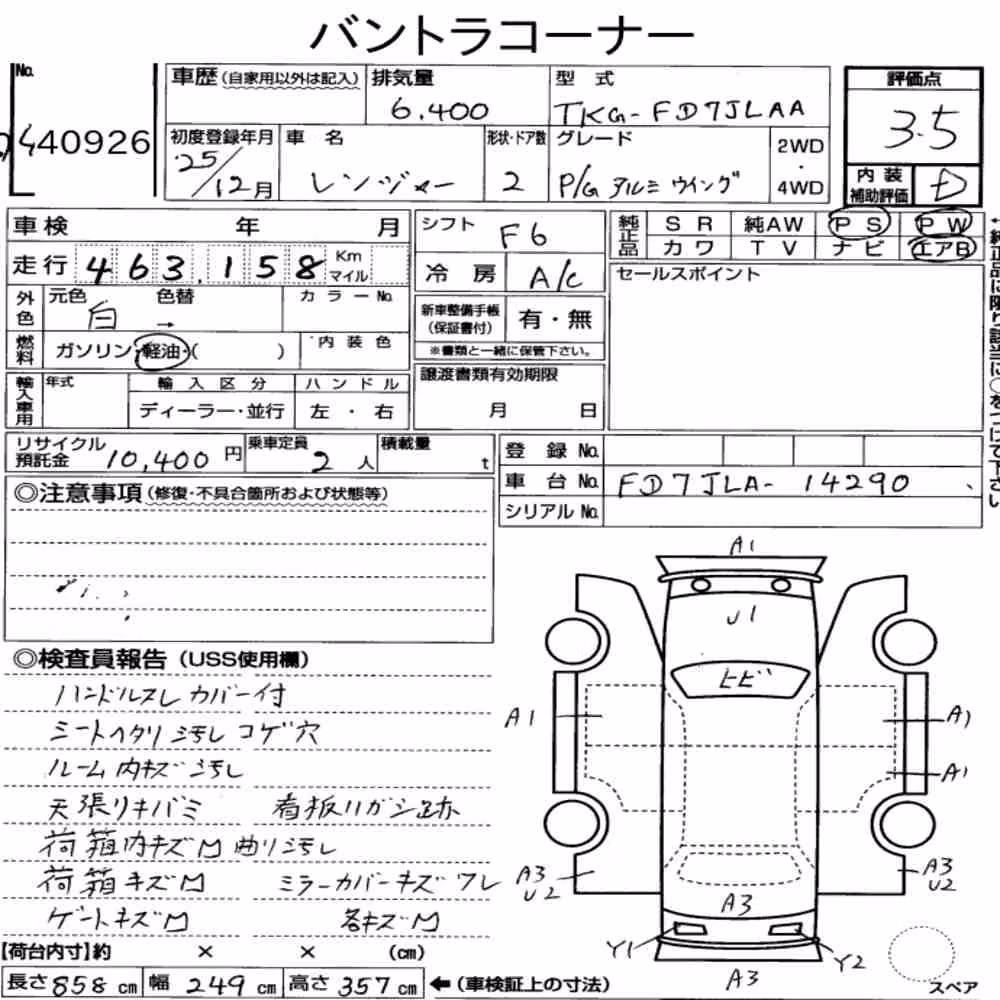 バントラコーナー
No.
440926
車歴(自家用以外は記入)
排気量
6.400
型式
TKG-FD7JLAA
評価点
3.5
初度登録年月
25/12月
車名
レンジャー
形状・ドア数
2
グレード
P/G アルミ ウイング
2WD
・
4WD
内装
補助評価
D
車検 年 月
シフト
F6
純正品
SR 純AW PS PW
カワ TV ナビ エアB
走行 463,158 Km マイル
冷房
A/C
セールスポイント
外色
元色 色替
白 →
カラーNo.
新車整備手帳
(保証書付)
有・無
※書類と一緒に保管下さい。
燃料
ガソリン・軽油・( )
内装色
譲渡書類有効期限
月 日
輸入車用
年式
輸入区分
ディーラー・並行
ハンドル
左・右
リサイクル
預託金 10,400円
乗車定員
2人
積載量
t
登録No.
車台No. FD7JLA-14290
シリアルNo.
◎注意事項(修復・不具合箇所および状態等)
◎検査員報告(USS使用欄)
ハンドルスレ カバー付
シートヘタリ 汚レ コゲ穴
ルーム内キズ 汚レ
天張リキバミ 看板ハガシ跡
荷箱内キズM 曲リ汚レ
荷箱キズM ミラーカバーキズワレ
ゲートキズM 各キズM
【荷台内寸】約 × × (cm)
長さ858cm 幅249cm 高さ357cm
←(車検証上の寸法)
A1
U1
ヒビ
A1
A1
A1
A3
U2
A3
U2
A3
Y1
Y2
A3
スペア